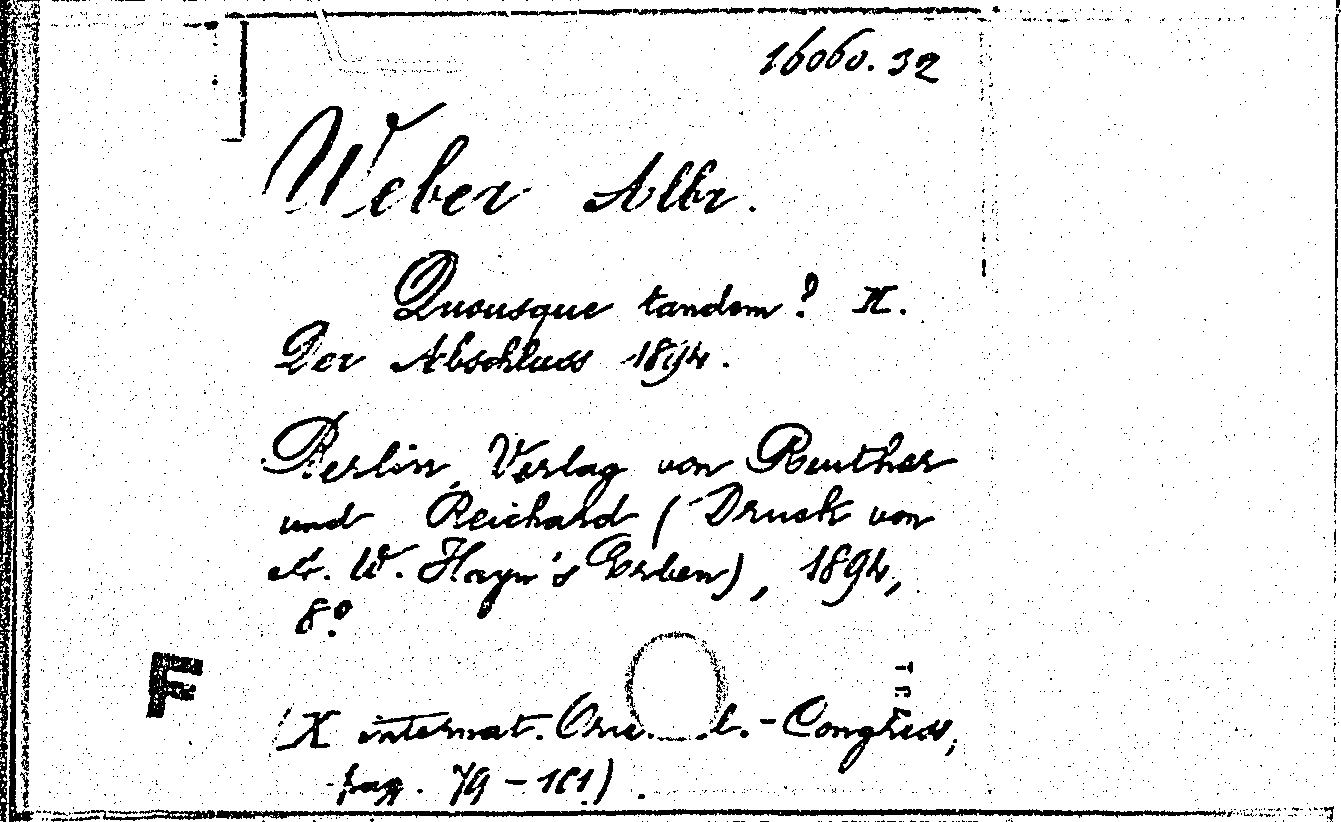 16060.32
Weber Albr.
Quousque tandem? II.
Der Abschluss 1894.
Berlin, Verlag von Reuther
und Reichard (Druck von
A. W. Hayn's Erben), 1894,
8º
F
(X internat. -Congress,
pag. 79-101).